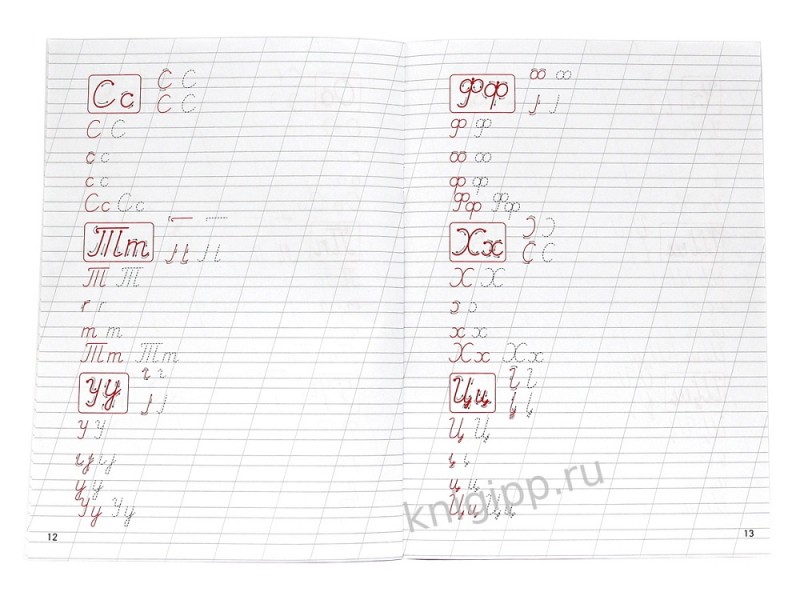 Сс С С
С С
С С
с с
с с
Сс Сс
Тт
Т Т
г г
т т
Тт Тт
Уу
У У
у у
Уу Уу
12
Фф
ф ф
ф ф
Фф Фф
Хх
С С
Х Х
х х
Хх Хх
Цц
Ц Ц
ц ц
Цц Цц
13
knigipp.ru